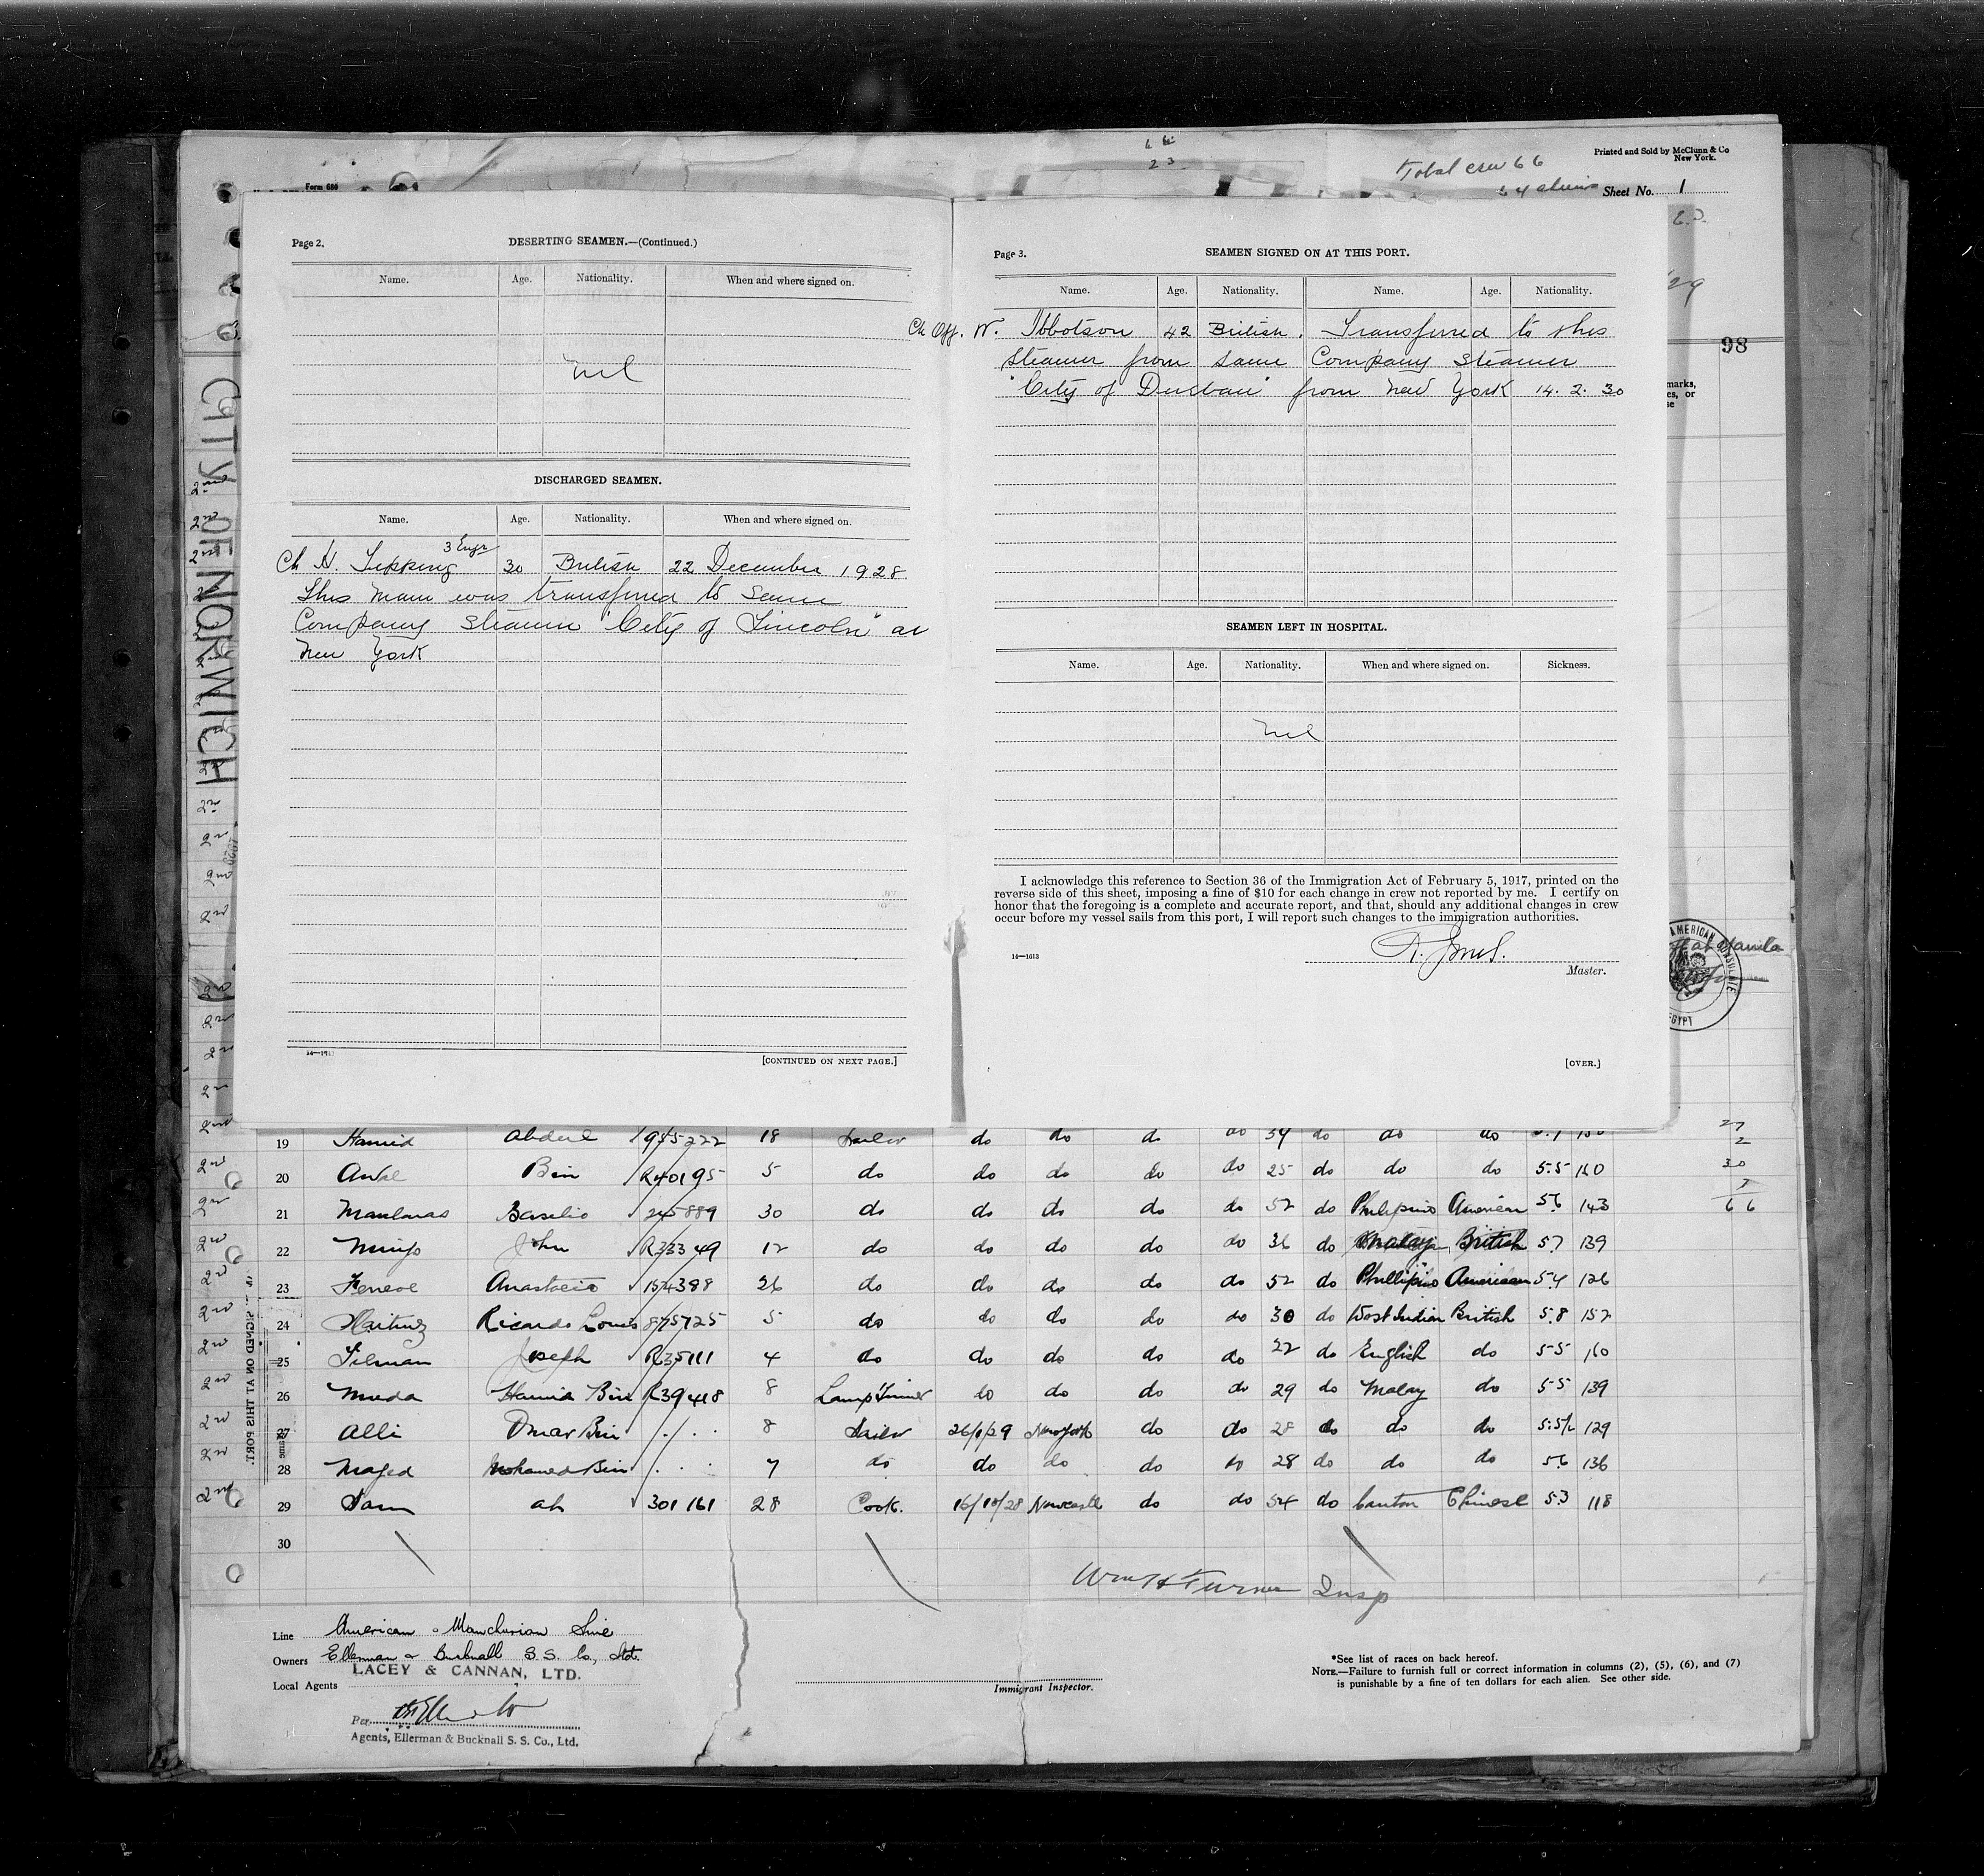 Printed and Sold by McClunn & Co
New York.
Total crew 66
Form 680
Sheet No. 1
98
CITY OF NORWICH
Page 2.
DESERTING SEAMEN.—(Continued.)
Name. Age. Nationality. When and where signed on.
nil
DISCHARGED SEAMEN.
Name. Age. Nationality. When and where signed on.
3 Engr
Ch H. Tepping 30 British 22 December 1928
This man was transferred to same
Company steamer "City of Lincoln" at
New York
[CONTINUED ON NEXT PAGE.]
Page 3.
SEAMEN SIGNED ON AT THIS PORT.
Name. Age. Nationality. Name. Age. Nationality.
Ch Off. W. Ibbotson 42 British. Transferred to this
steamer from same Company steamer
"City of Durban" from New York 14.2.30
SEAMEN LEFT IN HOSPITAL.
Name. Age. Nationality. When and where signed on. Sickness.
nil
I acknowledge this reference to Section 36 of the Immigration Act of February 5, 1917, printed on the
reverse side of this sheet, imposing a fine of $10 for each change in crew not reported by me. I certify on
honor that the foregoing is a complete and accurate report, and that, should any additional changes in crew
occur before my vessel sails from this port, I will report such changes to the immigration authorities.
14—1613
Master.
[OVER.]
AMERICAN
EGYPT
19 Hamid Abdul 18 Sailor do do do do do do do
20 Bin R40195 5 do do do do do 25 do do do 5.5 160
21 Basilio 245889 30 do do do do do 52 do Philipino American 5.6 143
22 John R33349 12 do do do do do 36 do Malay British 5.7 139
23 Anastacio 154388 26 do do do do do 52 do Phillipino American 5.4 126
24 Ricardo Louis 875725 5 do do do do do 30 do West Indian British 5.8 152
25 Joseph R35111 4 do do do do do 22 do English do 5-5 160
26 Muda Hamid Bin R39418 8 Lamp Trimmer do do do do 29 do Malay do 5-5 139
27 Alli Omar Bin 8 Sailor 26/6/29 New York do do 28 do do do 5:5½ 129
28 Majed Mohamed Bin 7 do do do do do 28 do do do 5.6 136
29 Sam ah 301161 28 Cook. 16/10/28 Newcastle do do 54 do Canton Chinese 5.3 118
30
Wm H Turner Insp
Line American & Manchurian Line
Owners Ellerman & Bucknall S.S. Co., Ltd.
LACEY & CANNAN, LTD.
Local Agents
Per
Agents, Ellerman & Bucknall S. S. Co., Ltd.
Immigrant Inspector.
*See list of races on back hereof.
NOTE.—Failure to furnish full or correct information in columns (2), (5), (6), and (7)
is punishable by a fine of ten dollars for each alien. See other side.